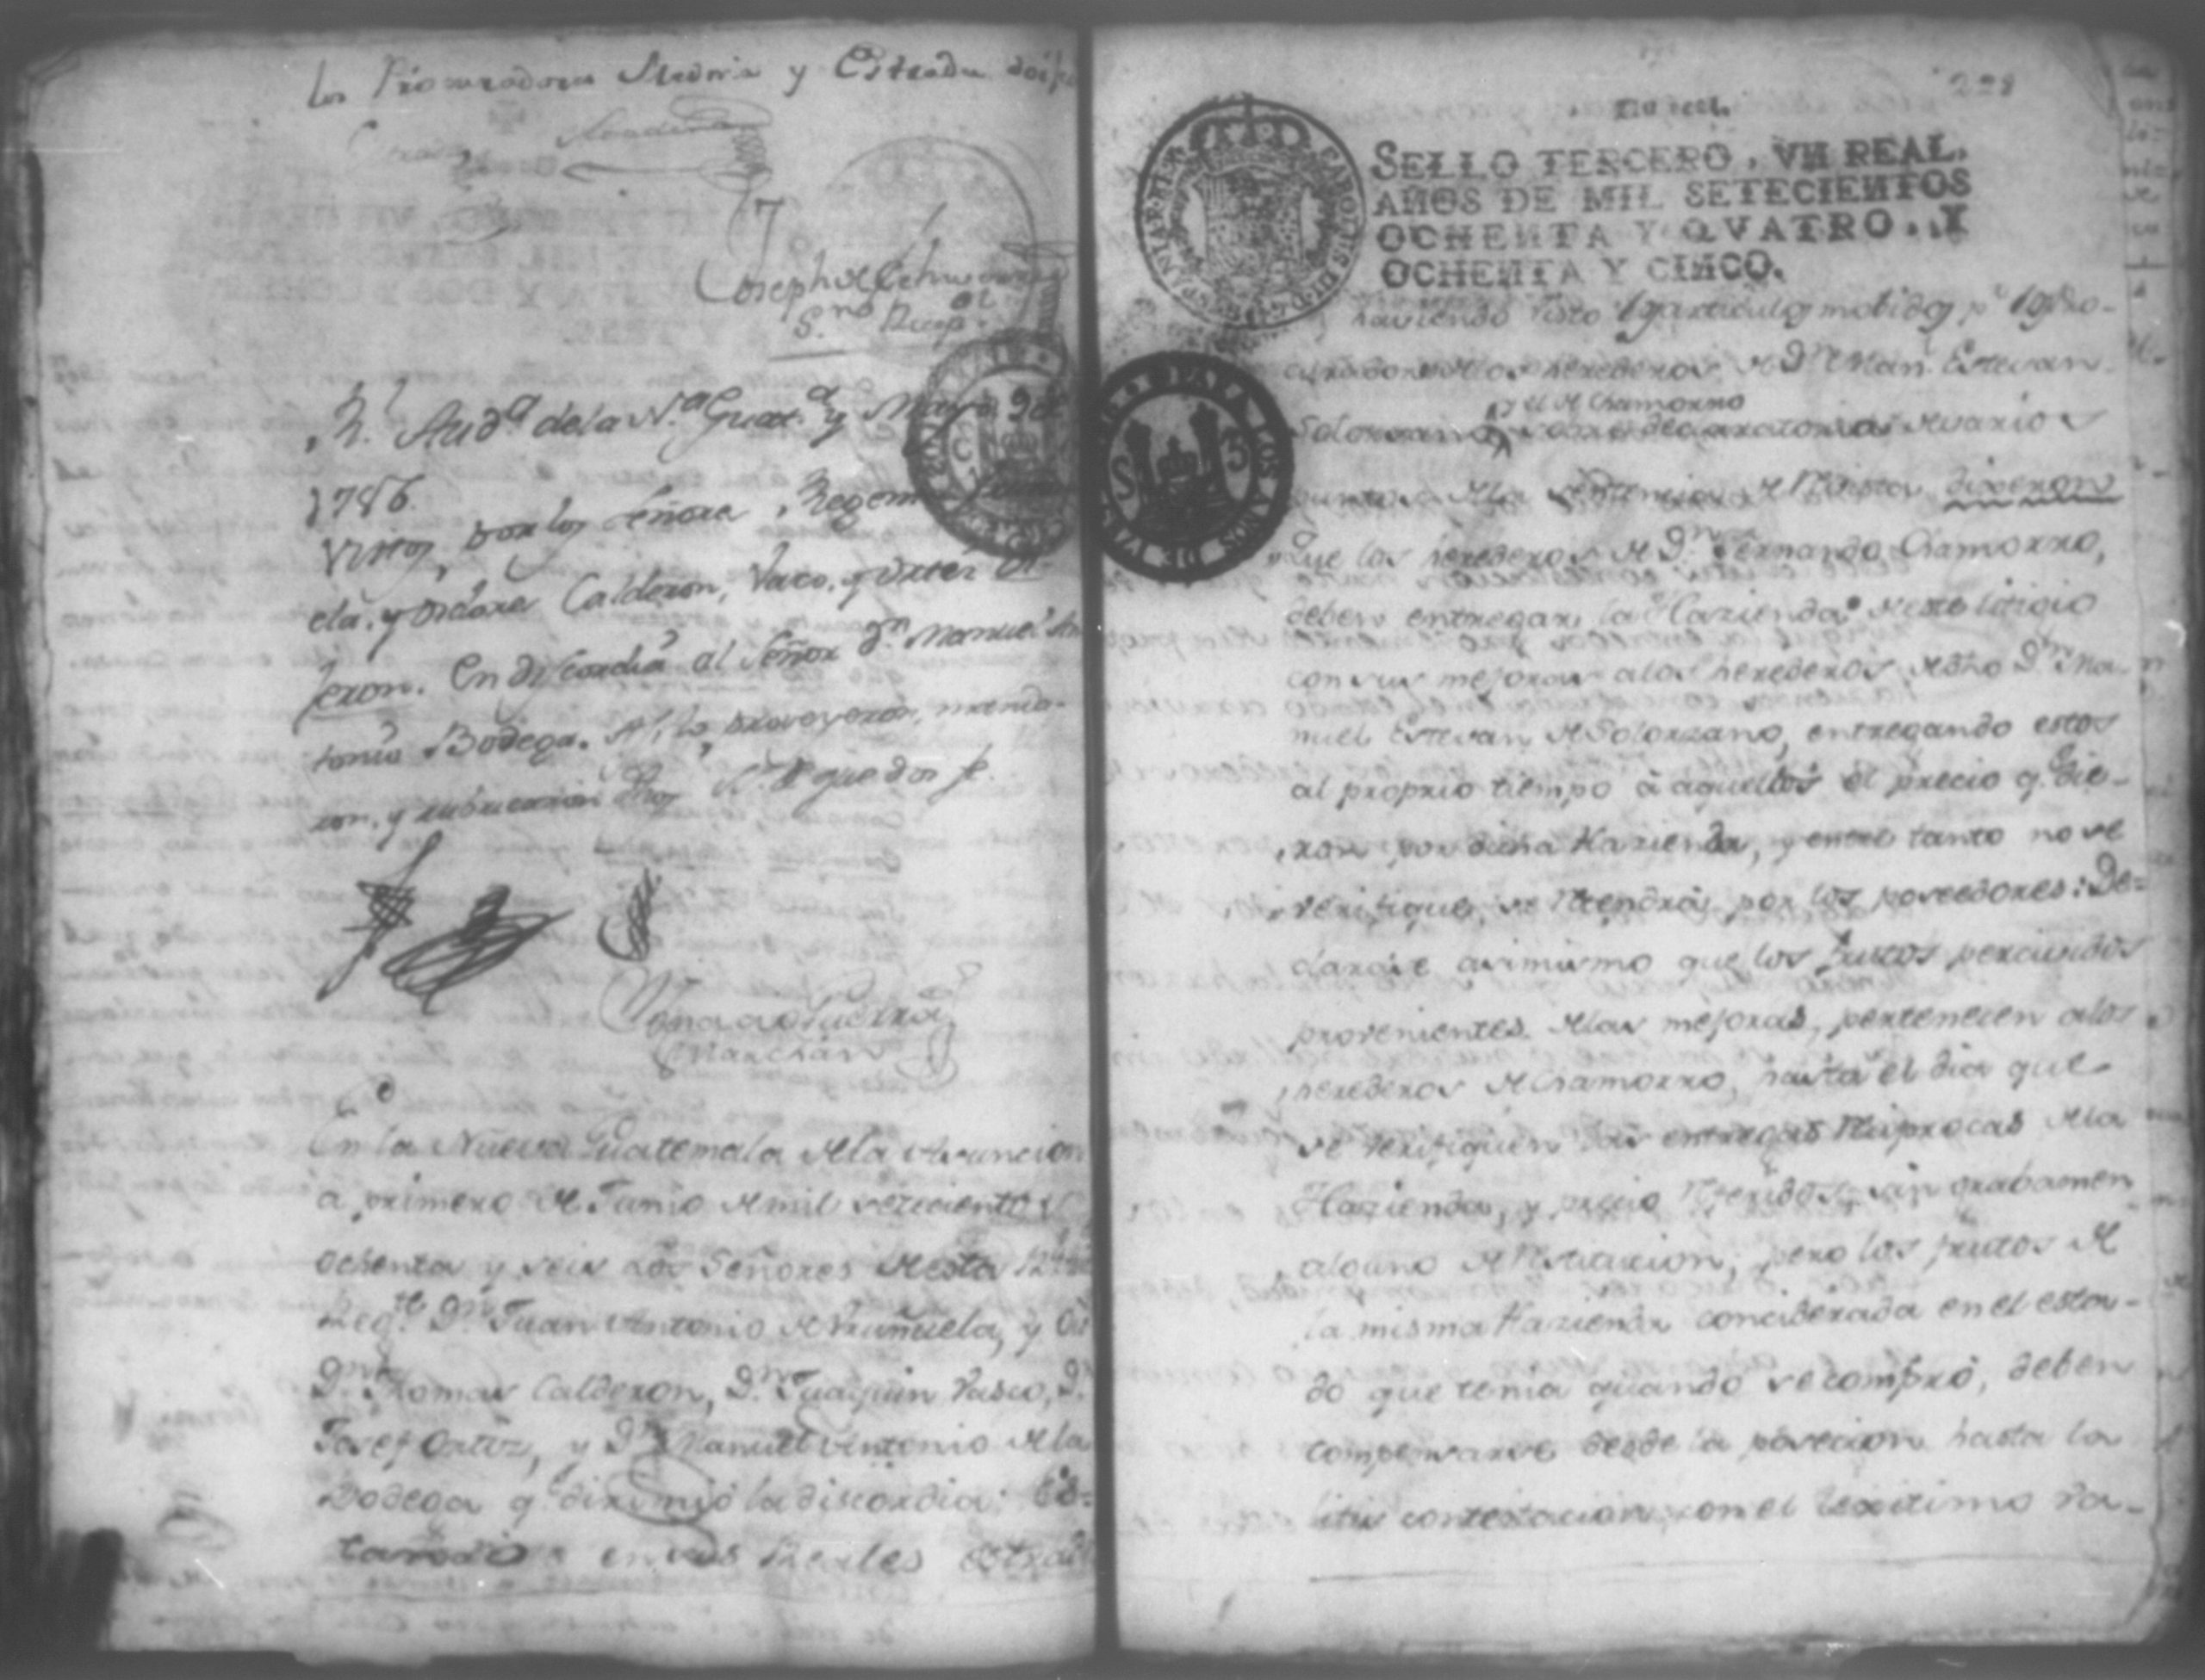 los Procuradores Medina y Estrada doi fee
Joseph de
S.no Recep.or
R.l Aud.a de la N.a Guat.a y Mayo 9 de
1786.
Vistos por los Señores, Regente
ela, y Oidores Calderon, Vasco, y Ortiz Di-
jeron. En discordia al Señor D.n Manuel An
tonio Bodega. Asi lo proveyeron, manda-
ron, y rubricaron de que doy fe.
Ygnacio Guerra
Marchan
En la Nueva Guatemala de la Asuncion
a primero de Junio de mil setecientos
ochenta y seis Los Señores de esta
Reg.te D.n Juan Antonio de Uruñuela, y Oi
D.n Thomas Calderon, D.n Juaquin Vasco, D.
Josef Ortiz, y D.n Manuel Antonio de la
Bodega q.e dirimió la discordia: Es-
tando en sus Reales Estrad
228
Un real.
SELLO TERCERO, VN REAL,
AÑOS DE MIL SETECIENTOS
OCHENTA Y QVATRO, Y
OCHENTA Y CINCO.
haviendo visto los articulos mobidos p.r los Pro-
curadores de los herederos de D.n Man. Estevan
y el de Chamorro
Solorzano, sobre declaratoria de varios
puntos de la sentencia de Revista, dixeron
Que los herederos de D.n Fernando Chamorro,
deben entregar, la Hazienda de este litigio
con sus mejoras a los herederos, de dho D.n Ma-
nuel Estevan de Solorzano, entregando estos
al proprio tiempo à aquellos el precio q.e die-
ron por dicha Hazienda, y entre tanto no se
verifique, se tendrán por los poseedores: De-
clarase asimismo que los frutos percividos
provenientes de las mejoras, pertenecen a los
herederos de Chamorro, hasta el dia que
se verifiquen las entregas reciprocas de la
Hazienda, y precio referidos, sin grabamen
alguno de restitucion; pero los frutos de
la misma Hazienda conciderada en el esta-
do que tenia quando se compró, deben
compensarse desde la posecion hasta la
litis contestacion, con el lexitimo va-